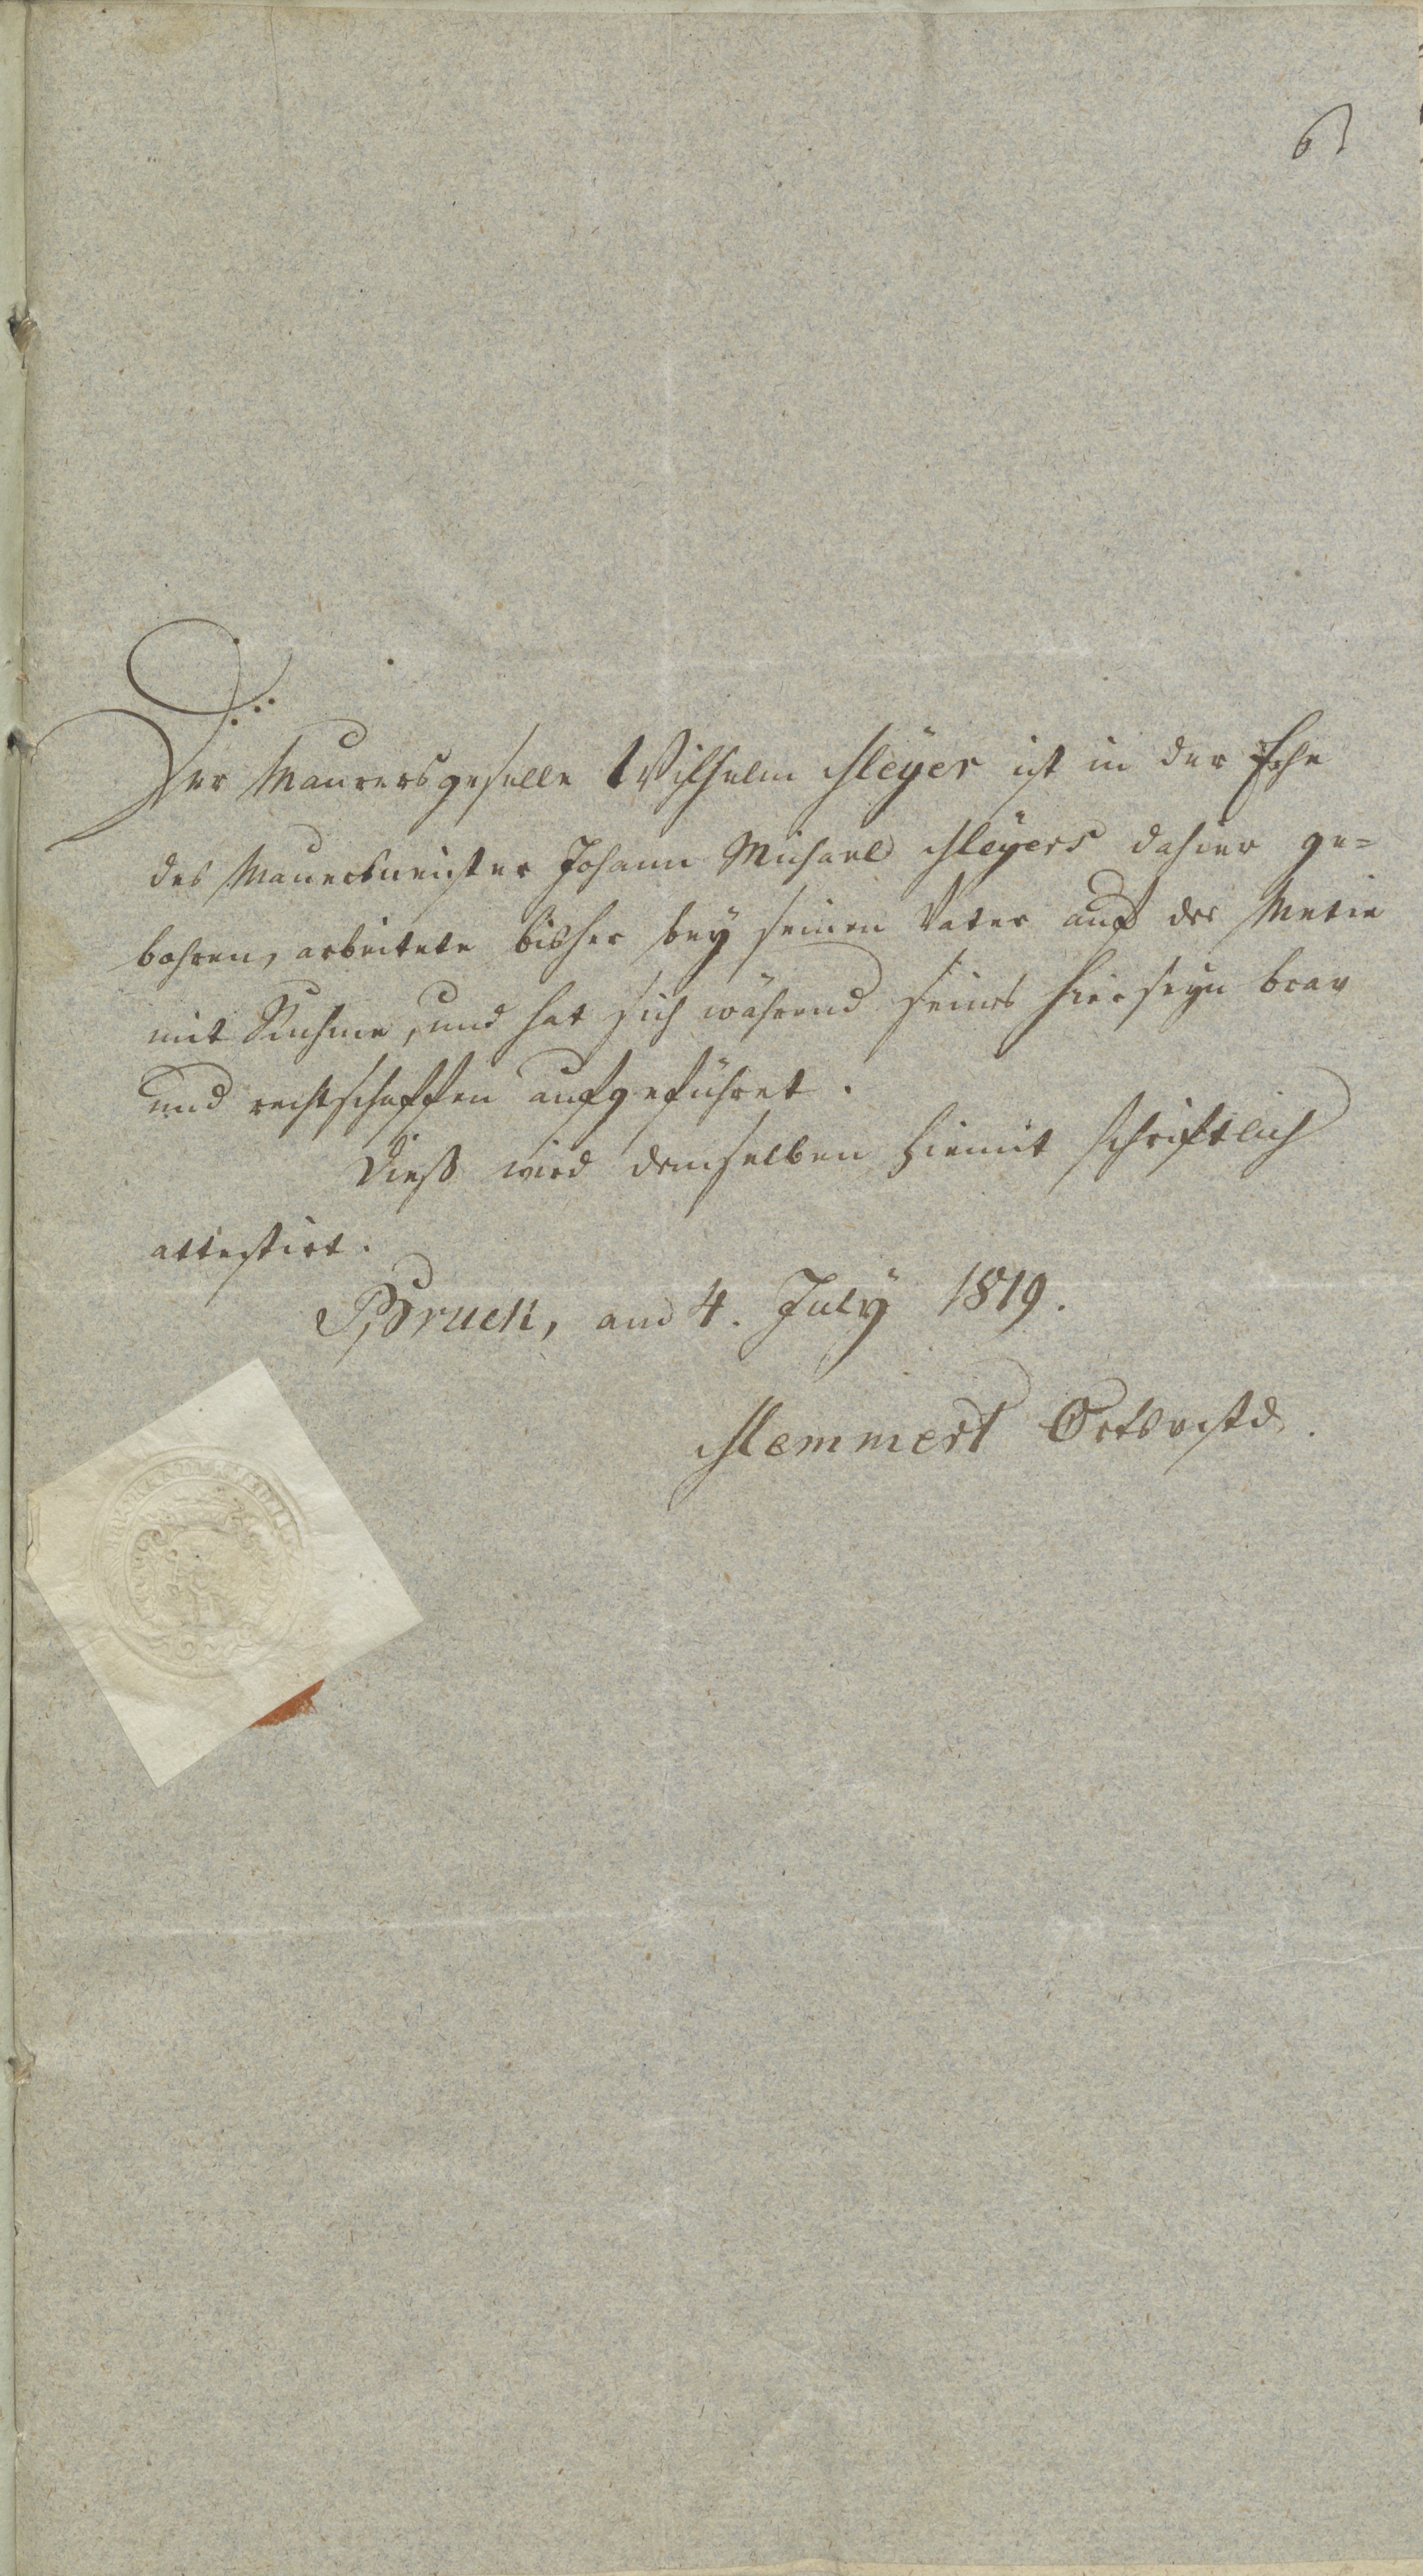 6
Der Maurersgeselle Wilhelm Meÿer ist in der Ehe
des Mauersmeister Johann Michael Meÿers dahier ge=
bohren, arbeitete bisher beÿ seinen Vater auf der Metie
mit Ruhme, und hat sich während seines Hierseÿn brav
und rechtschaffen aufgeführet.
Dieß wird demselben hiemit schriftlich
attestirt.
Bruck, am 4. Julÿ 1819.
Memmert Ortsvstd.